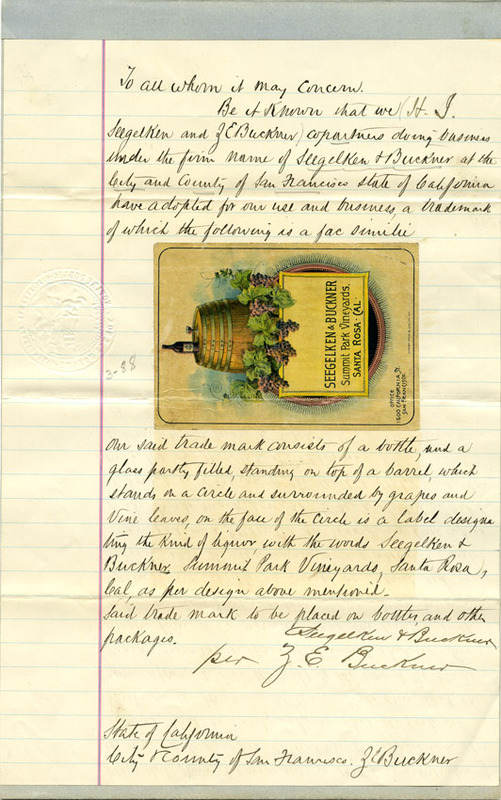 To all whom it may Concern.
Be it Known that we (H. J.
Seegelken and Z E Buckner) copartners doing business
under the firm name of Seegelken & Buckner at the
City and County of San Francisco state of California
have adopted for our use and business, a trademark
of which the following is a fac similie
SEEGELKEN & BUCKNER
Summit Park Vineyards.
SANTA ROSA - CAL.
OFFICE
1500 CALIFORNIA ST.
SAN FRANCISCO.
3-88
Our said trade mark consists of a bottle, and a
glass partly filled, standing on top of a barrel, which
stands on a circle and surrounded by grapes and
Vine leaves, on the face of the circle is a label designa
ting the Kind of liquor, with the words Seegelken &
Buckner, Summit Park Vineyards, Santa Rosa,
Cal, as per design above mentioned.
Said trade mark to be placed on bottles, and other
packages.
Seegelken & Buckner
per Z. E. Buckner
State of California
City & County of San Francisco. Z E Buckner